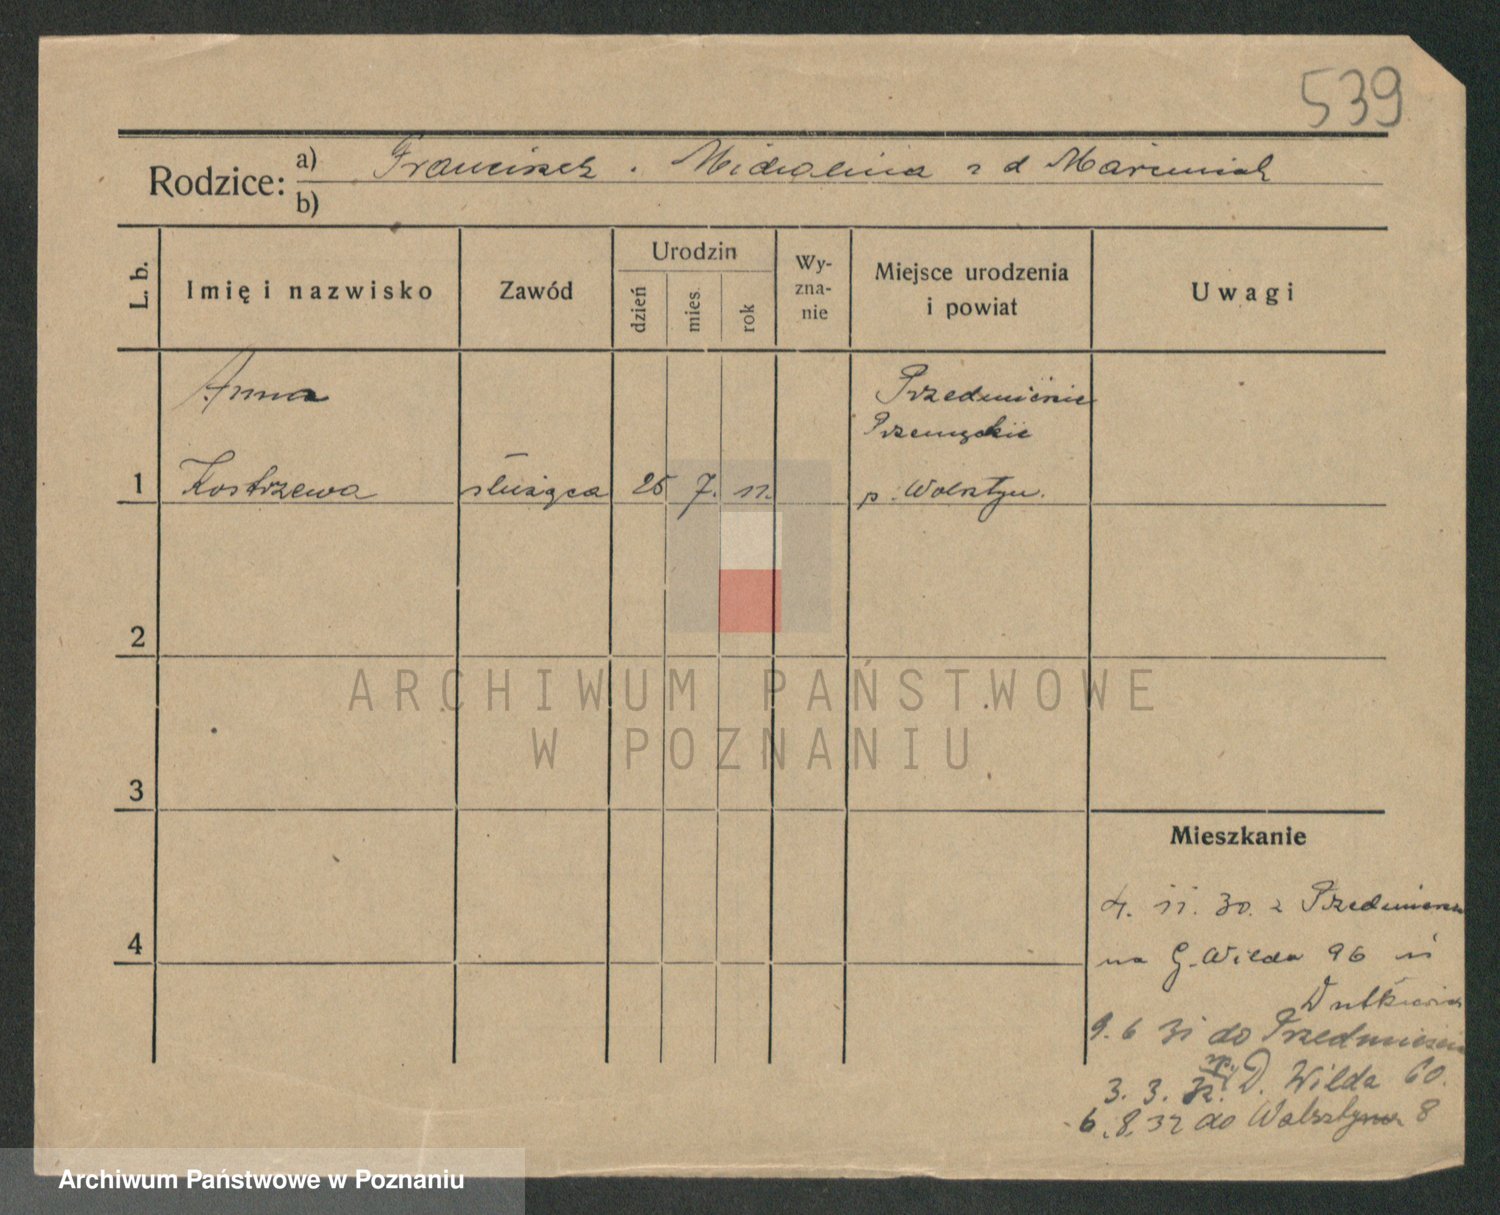 539
Rodzice: a) Franciszek . Michalina z d Marciniak
b)
L. b.
Imię i nazwisko
Zawód
Urodzin
dzień
mies.
rok
Wy-
zna-
nie
Miejsce urodzenia
i powiat
Uwagi
Anna
Przedmieście
Przemęckie
1 Kostrzewa służąca 25 7. 11. p. Wolsztyn.
2
ARCHIWUM PAŃSTWOWE
W POZNANIU
3
Mieszkanie
4. 11. 30. z
4
na G. Wilda 96
9. 6 31 do
3. 3. 32. D. Wilda 60.
6. 8. 32 do 8
Archiwum Państwowe w Poznaniu